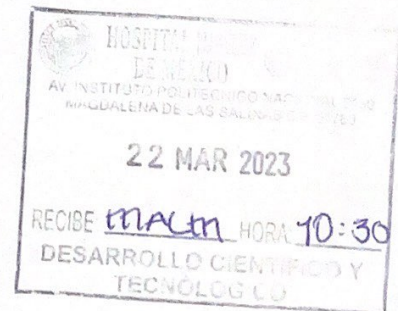 HOSPITAL
DE MÉXICO
AV. INSTITUTO POLITÉCNICO
MAGDALENA DE LAS SALINAS
22 MAR 2023
RECIBE MALM HORA 10:30
DESARROLLO CIENTÍFICO Y
TECNOLÓGICO